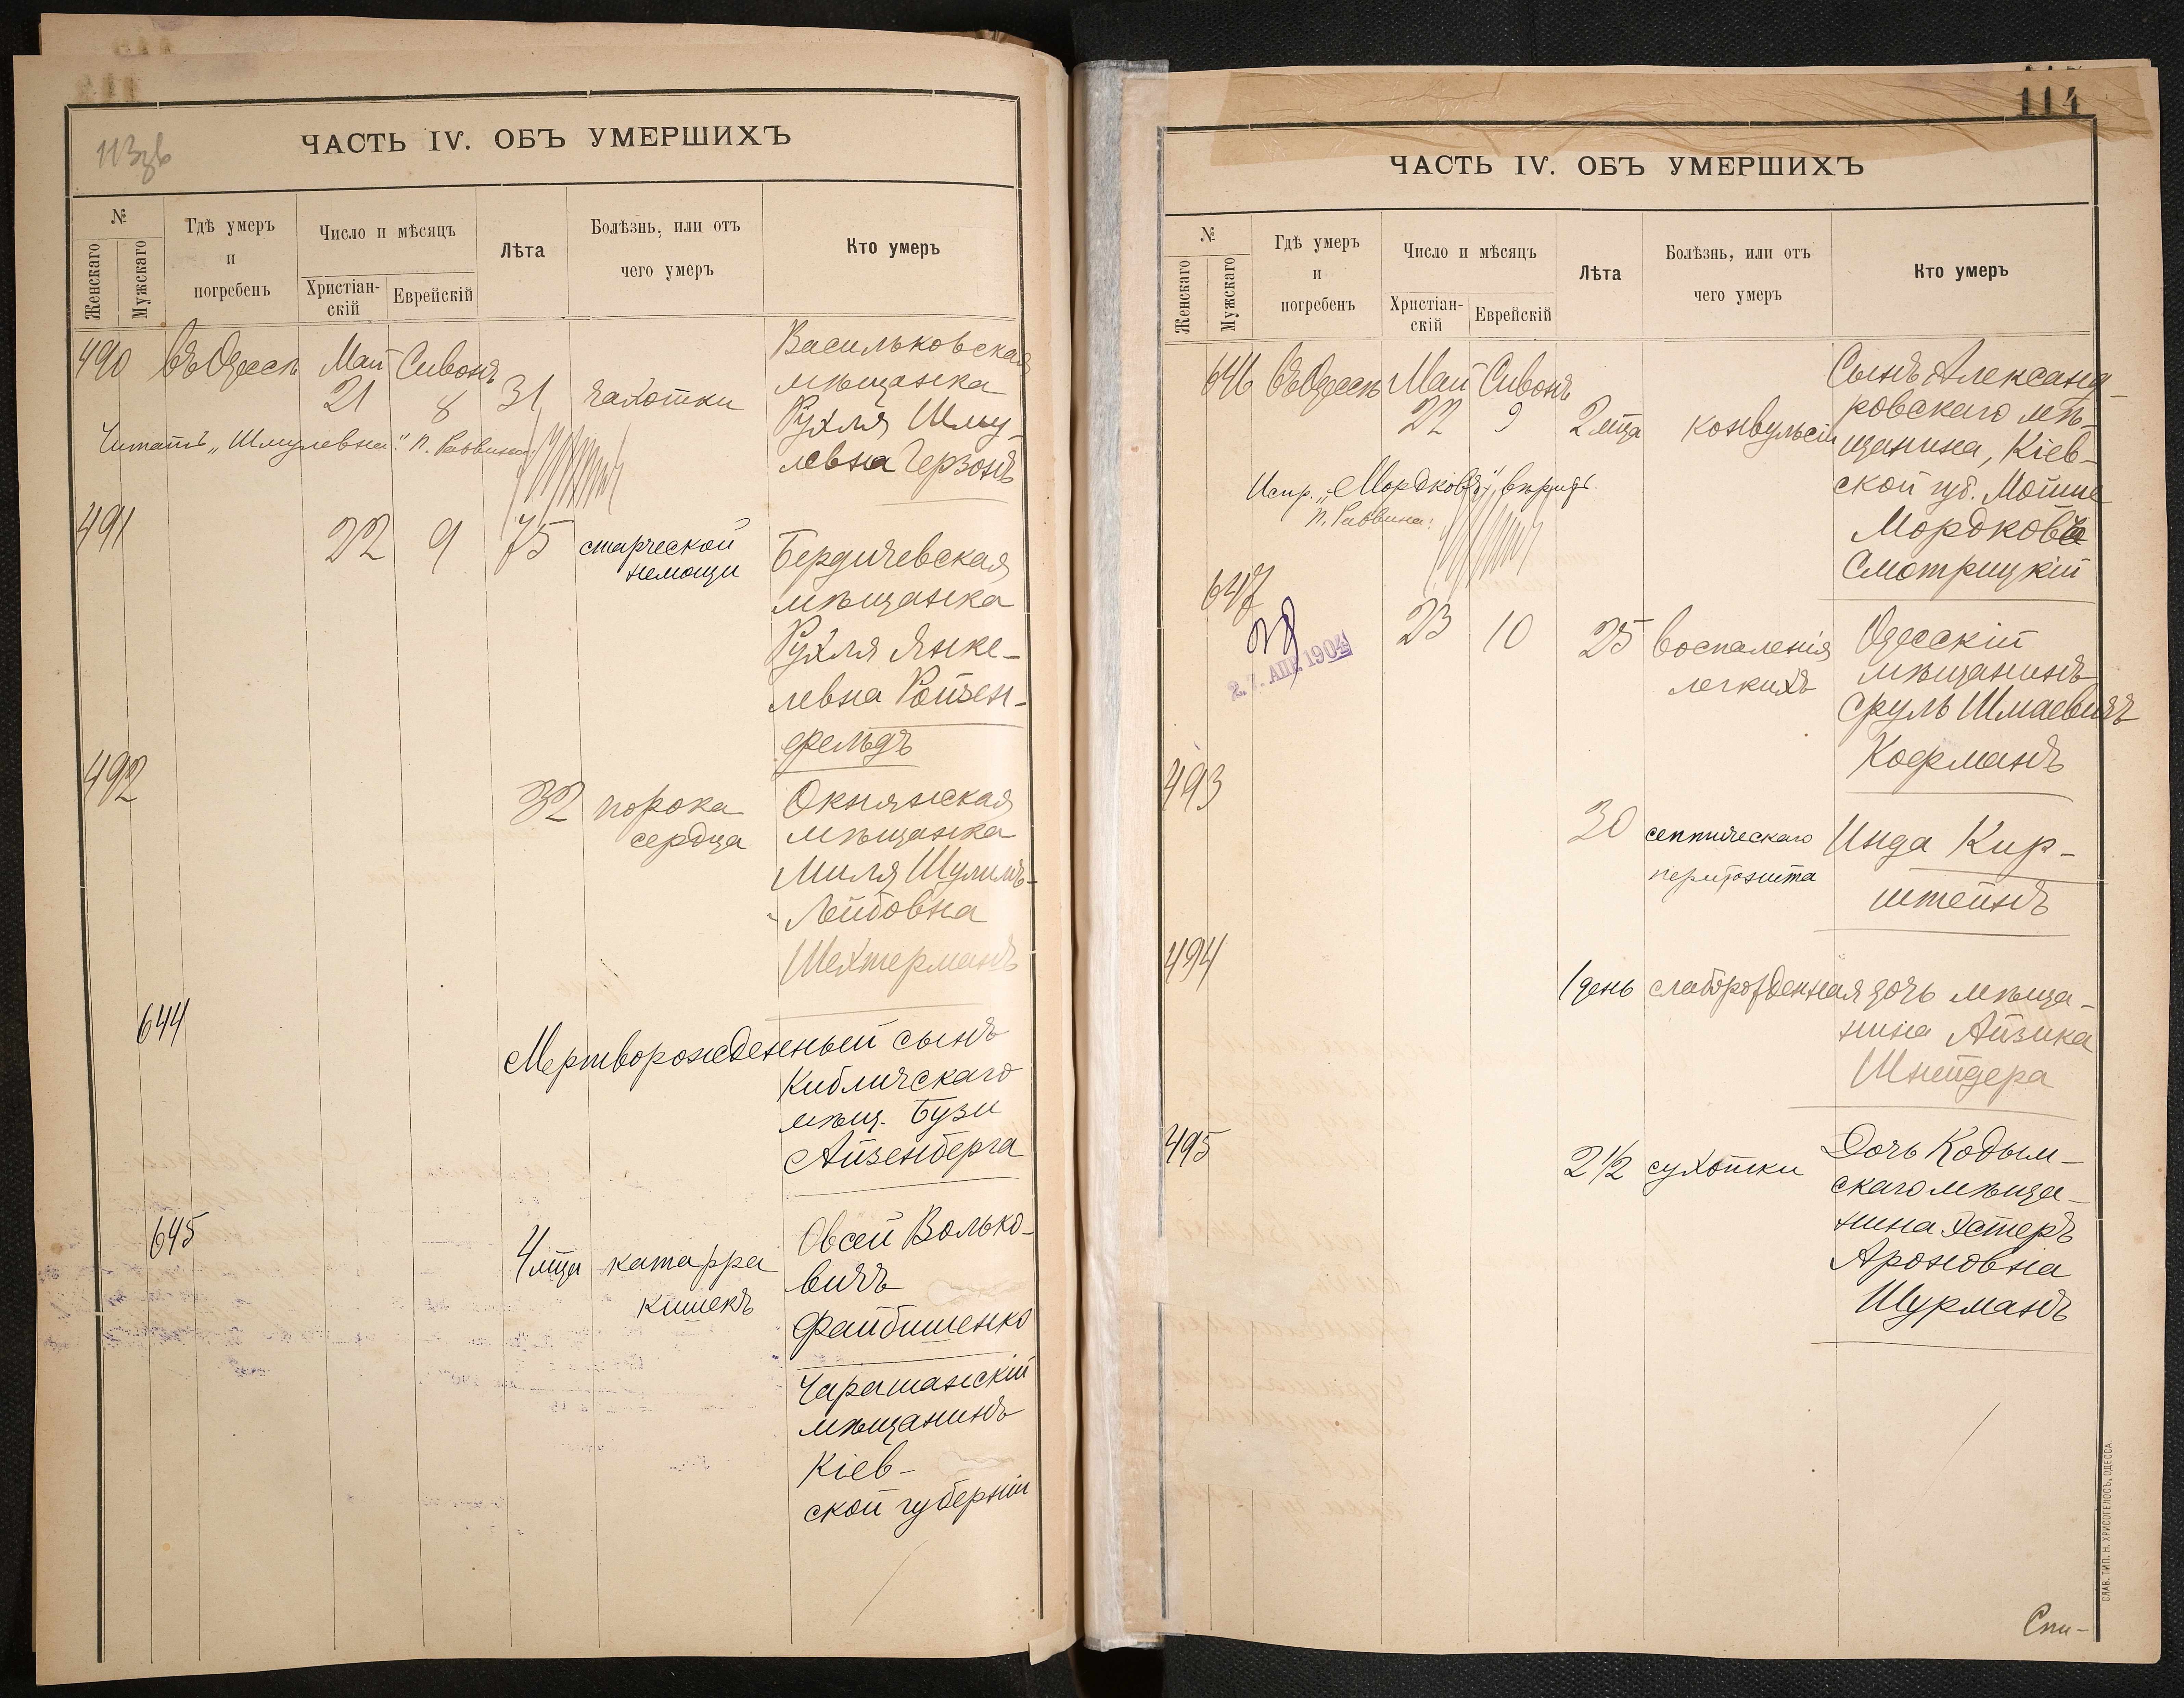 113 зв
ЧАСТЬ IV. ОБЪ УМЕРШИХЪ
№
Женскаго
Мужскаго
Гдѣ умеръ
и
погребенъ
Число и мѣсяцъ
Христіан-
скій
Еврейскій
Лѣта
Болѣзнь, или отъ
чего умеръ
Кто умеръ
490 въ Одессѣ Май Сивонъ
21 8 31 чахотки
Васильковская
мѣщанка
Рухля Шму-
левна Герзонъ
Читать „Шмулевна". П. Раввина:
491 22 9 75 старческой
немощи
Бердичевская
мѣщанка
Рухля Янке-
левна Ройзен-
фельдъ
492 32 порока
сердца
Окнянская
мѣщанка
Миля Шулимъ-
Лейбовна
Шехтерманъ
644 Мертворожденный сынъ
Кибличскаго
мѣщ. Бузи
Айзенберга
645 4 мѣца катарра
кишекъ
Овсей Волько-
вичъ
Файбишенко
Таращанскій
мѣщанинъ
Кіев-
ской губерніи
114
ЧАСТЬ IV. ОБЪ УМЕРШИХЪ
№
Женскаго
Мужскаго
Гдѣ умеръ
и
погребенъ
Число и мѣсяцъ
Христіан-
скій
Еврейскій
Лѣта
Болѣзнь, или отъ
чего умеръ
Кто умеръ
646 въ Одессѣ Май Сивонъ
22 9 2 мѣца конвульсіи
Сынъ Александ-
ровскаго мѣ-
щанина, Кіев-
ской губ. Мойше
Мордковъ
Смотрицкій
Испр. „Мордковъ", вѣрить.
П. Раввина:
647 23 10 25 воспаленія
легкихъ
Одесскій
мѣщанинъ
Сруль Шмаевичъ
Кофманъ
27. АПР. 1904
493 30 септическаго
перитонита
Инда Кир-
штейнъ
494 1 день слаборожденная дочь мѣща-
нина Айзика
Шнейдера
495 2 1/2 сухотки
Дочь Кодым-
скаго мѣща-
нина Эстеръ
Ароновна
Шурманъ
Спи-
СЛАВ. ТИП. Н. ХРИСОГЕЛОСЪ, ОДЕССА.